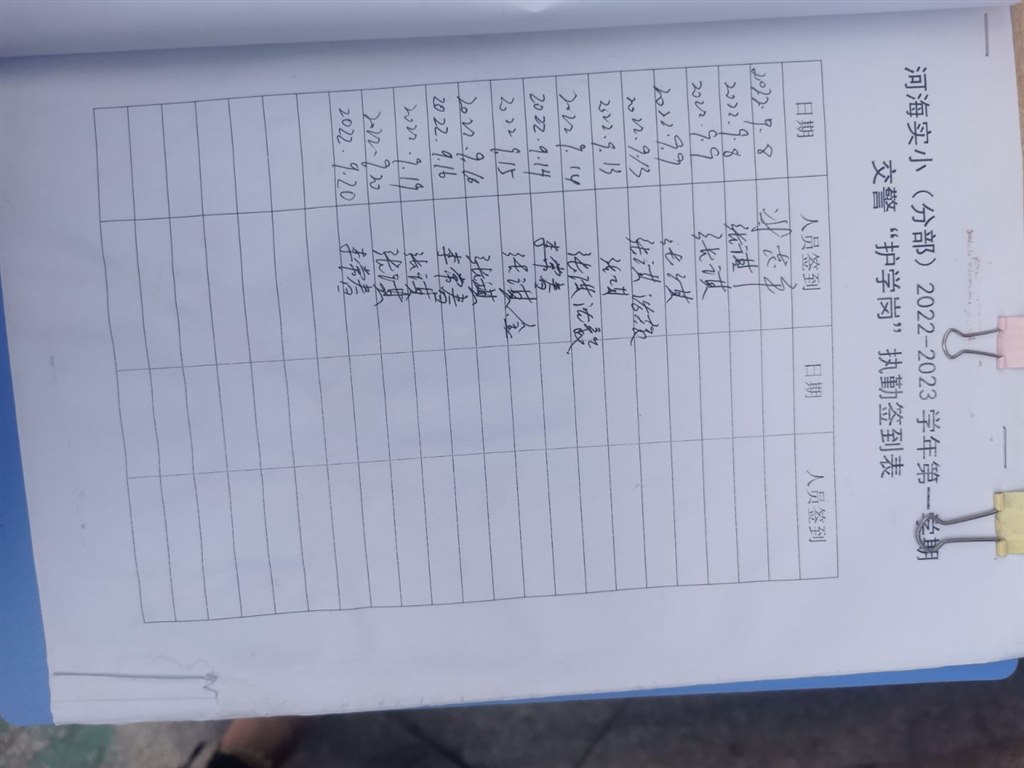 河海实小（分部）2022-2023 学年第一学期
交警“护学岗”执勤签到表
日期 人员签到 日期 人员签到
2022.9.8
2022.9.8 张琪
2022.9.9 张琪
2022.9.9 张琪
2022.9/13 张琪
2022.9.13 张琪
2022.9.14 张琪
2022.9.14 李常青
2022.9.15 张琪
2022.9.16 张琪
2022.9.16 李常青
2022.9.19 张琪
2022.9.20 张琪
2022.9.20 李常青